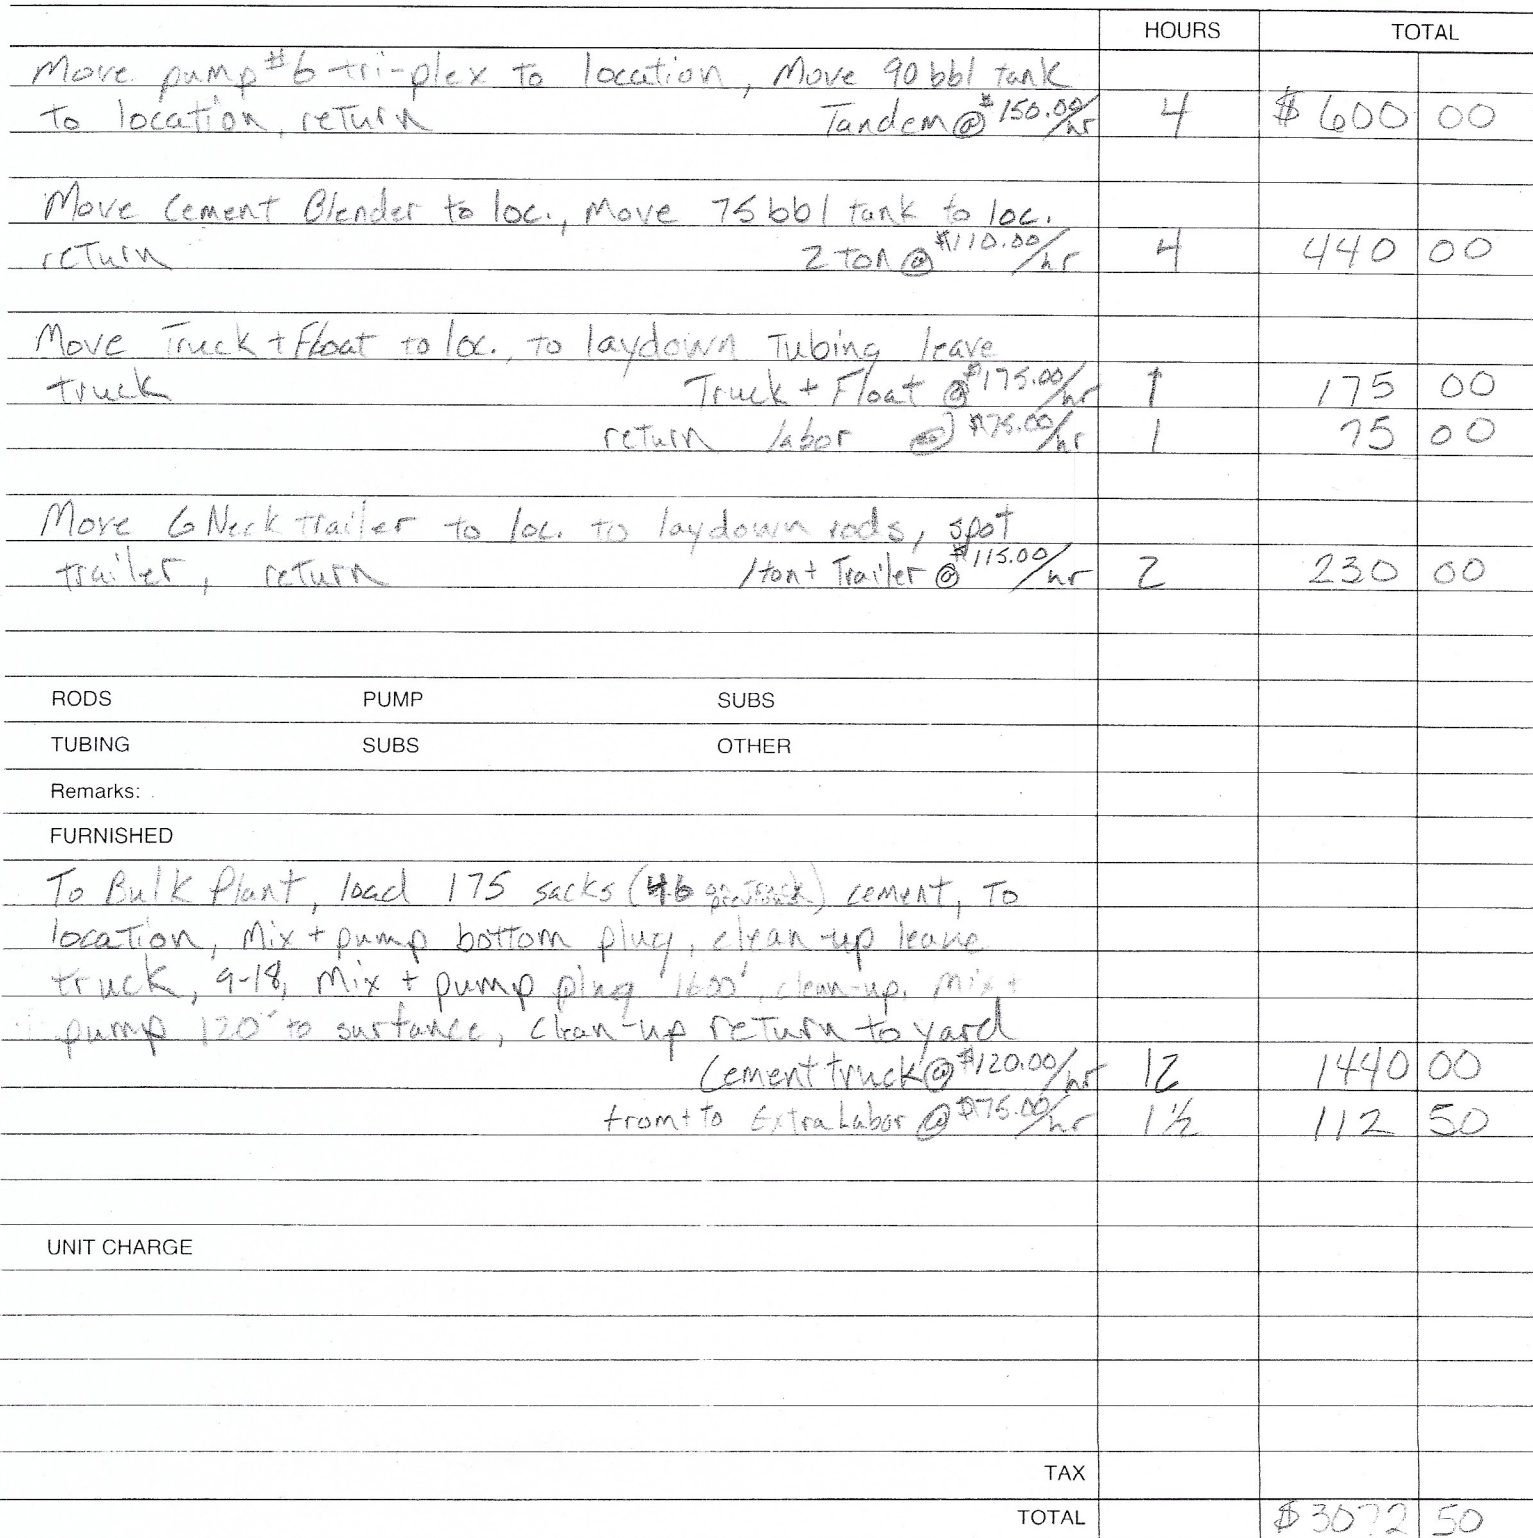 HOURS TOTAL
Move pump #6 tri-plex to location, Move 90 bbl tank
to location, return Tandem @ $150.00/hr 4 $ 600 00
Move Cement Blender to loc., Move 75 bbl tank to loc.
return 2 ton @ $110.00/hr 4 440 00
Move Truck + Float to loc., to laydown Tubing leave
truck Truck + Float @ $175.00/hr 1 175 00
return labor @ $75.00/hr 1 75 00
Move G Neck Trailer to loc. to laydown rods, spot
trailer, return 1 ton + Trailer @ $115.00/hr 2 230 00
RODS PUMP SUBS
TUBING SUBS OTHER
Remarks:
FURNISHED
To Bulk Plant, load 175 sacks (46 on Truck previous) cement, To
location, Mix + pump bottom plug, clean-up leave
truck, 9-18, Mix + pump plug 1600', clean-up. Mix +
pump 120' to surfance, clean-up return to yard
Cement truck @ $120.00/hr 12 1440 00
from + to Extra Labor @ $75.00/hr 1 1/2 112 50
UNIT CHARGE
TAX
TOTAL $ 3072 50